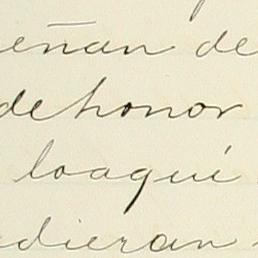 eñan de
de honor
loaqui
dieran